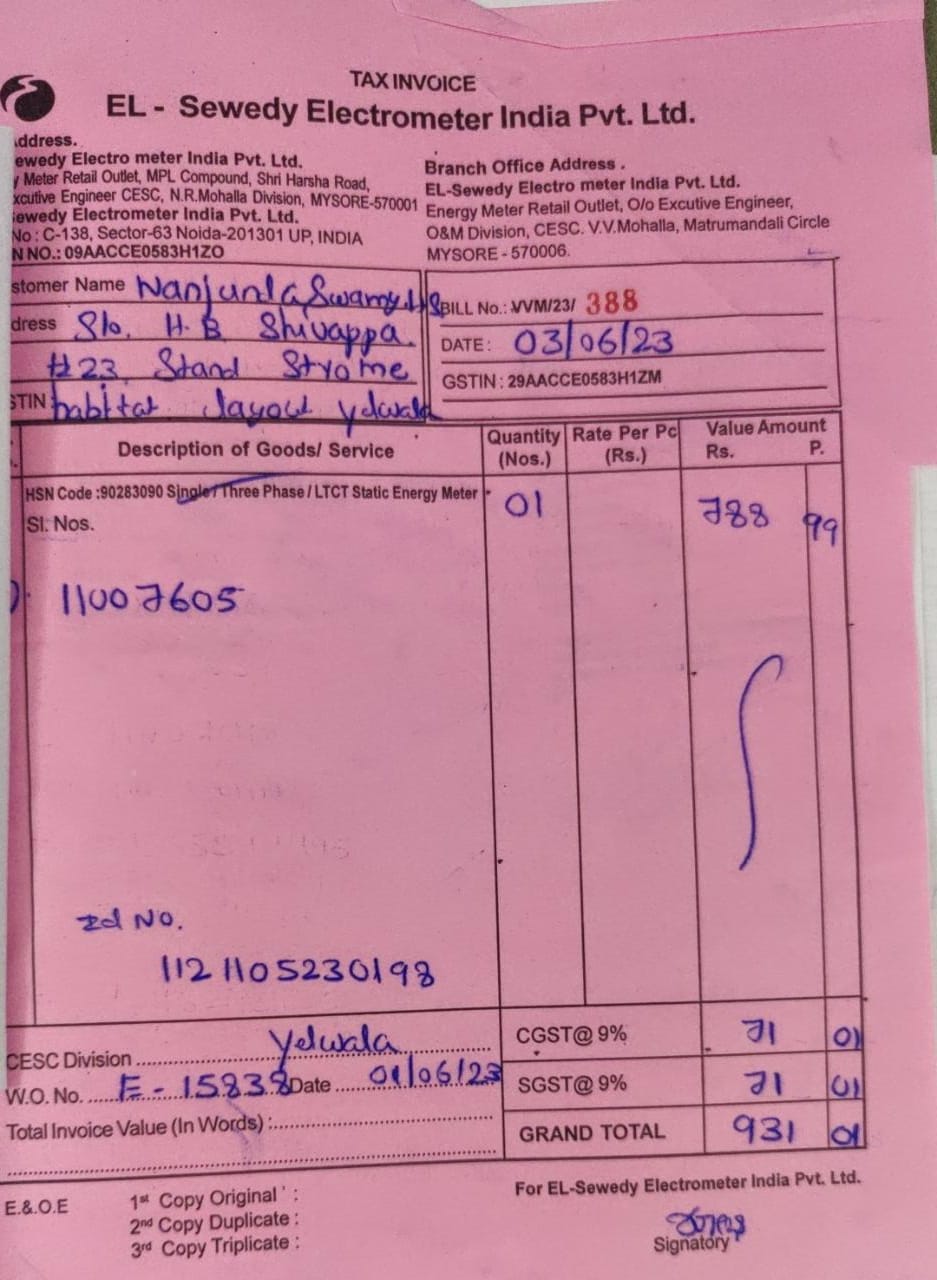 TAX INVOICE
EL - Sewedy Electrometer India Pvt. Ltd.
ddress.
ewedy Electro meter India Pvt. Ltd.
y Meter Retail Outlet, MPL Compound, Shri Harsha Road,
xcutive Engineer CESC, N.R.Mohalla Division, MYSORE-570001
ewedy Electrometer India Pvt. Ltd.
No : C-138, Sector-63 Noida-201301 UP, INDIA
N NO.: 09AACCE0583H1ZO
Branch Office Address .
EL-Sewedy Electro meter India Pvt. Ltd.
Energy Meter Retail Outlet, O/o Excutive Engineer,
O&M Division, CESC. V.V.Mohalla, Matrumandali Circle
MYSORE - 570006.
stomer Name Nanjunda Swamy
dress S/o. H.B Shivappa.
#23, Stand Strome
STIN habitat layout yelwala
BILL No.: VVM/23/ 388
DATE : 03/06/23
GSTIN : 29AACCE0583H1ZM
Description of Goods/ Service Quantity (Nos.) Rate Per Pc (Rs.) Value Amount Rs. P.
HSN Code :90283090 Single / Three Phase / LTCT Static Energy Meter 01 788 99
Sl. Nos.
11007605
Id No.
1121105230198
CESC Division Yelwala
W.O. No. E-15838 Date 01/06/23
Total Invoice Value (In Words) :
CGST@ 9% 71 01
SGST@ 9% 71 01
GRAND TOTAL 931 01
E.&.O.E
1st Copy Original :
2nd Copy Duplicate :
3rd Copy Triplicate :
For EL-Sewedy Electrometer India Pvt. Ltd.
Signatory